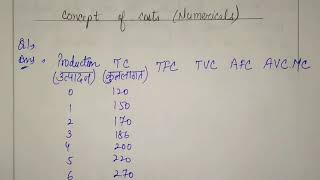 Concept of costs (Numericals)
Q1,
Ans, Production TC TFC TVC AFC AVC MC
(उत्पादन) (कुललागत)
0 120
1 150
2 170
3 186
4 200
5 220
6 270